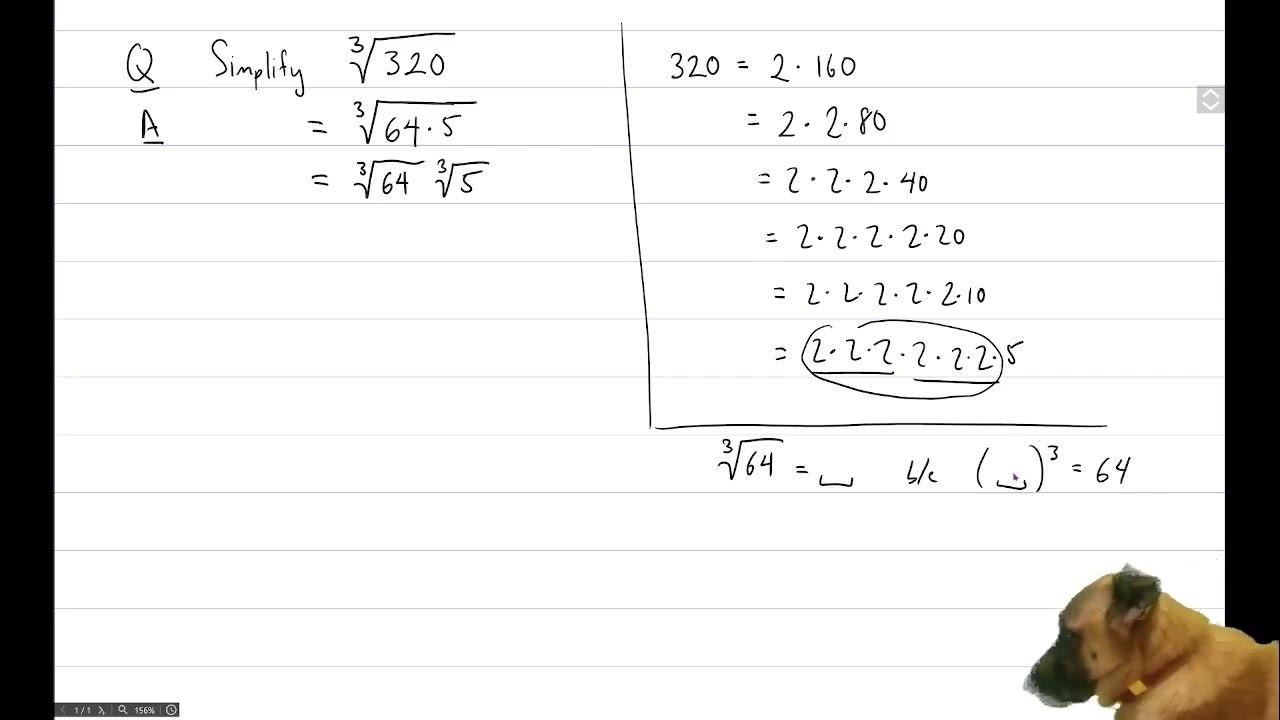 Q Simplify ∛320
A = ∛64·5
= ∛64 ∛5
320 = 2·160
= 2·2·80
= 2·2·2·40
= 2·2·2·2·20
= 2·2·2·2·2·10
= 2·2·2·2·2·2·5
∛64 = ⎵ b/c (⎵)³ = 64
1/1 156%